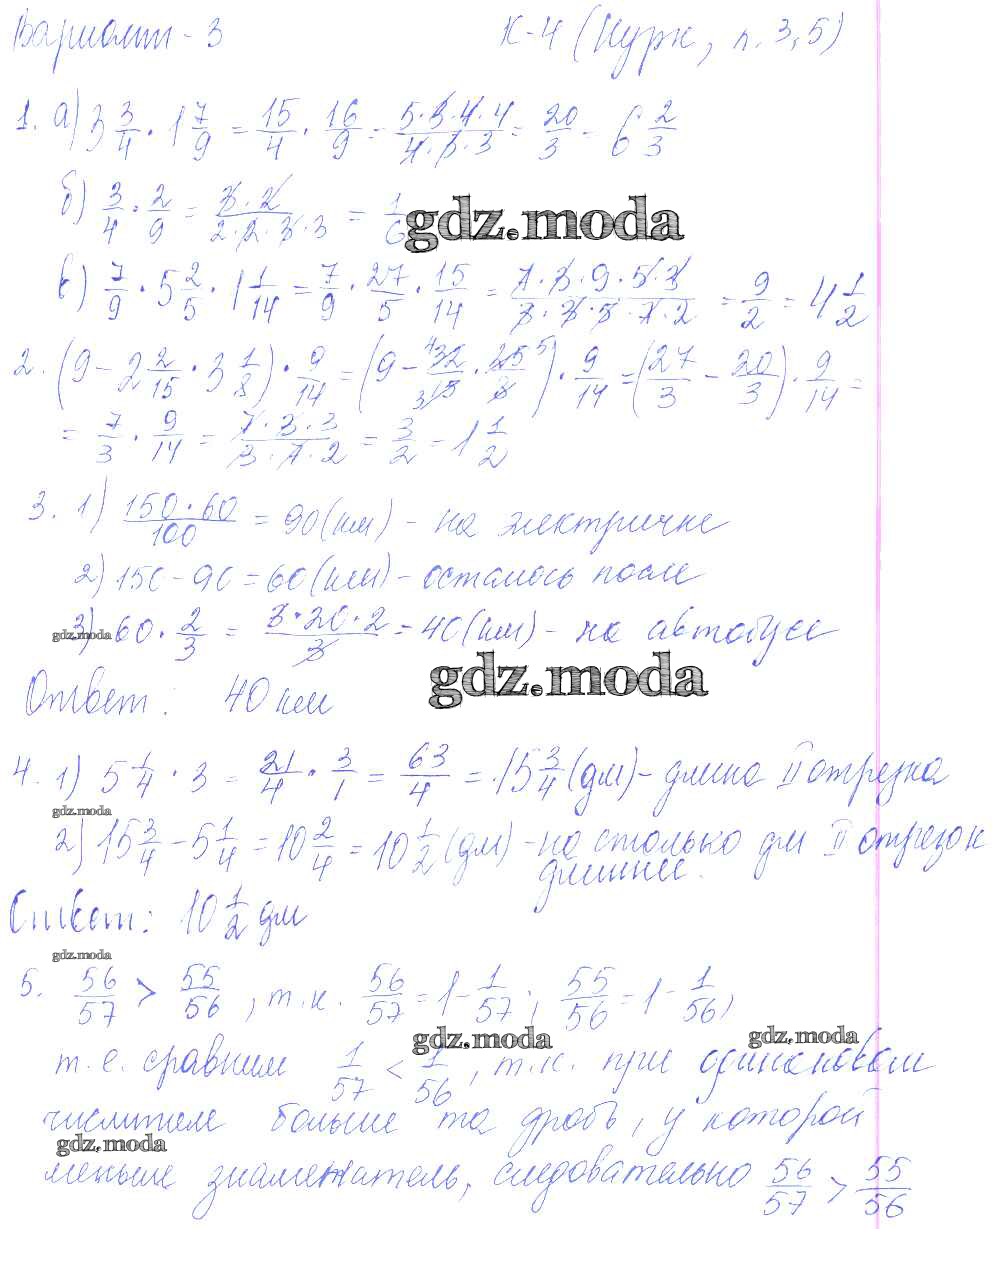 Вариант - 3 К-4 (Нурк, п. 3,5)
1. а) 3 3/4 · 1 7/9 = 15/4 · 16/9 = 5·3·4·4/4·3·3 = 20/3 = 6 2/3
б) 3/4 · 2/9 = 3·2/2·2·3·3 = 1/6
gdz.moda
в) 7/9 · 5 2/5 · 1 1/14 = 7/9 · 27/5 · 15/14 = 7·3·9·5·3/3·3·5·7·2 = 9/2 = 4 1/2
2. (9 - 2 2/15 · 3 1/8) · 9/14 = (9 - 32/15 · 25/8) · 9/14 = (27/3 - 20/3) · 9/14 =
= 7/3 · 9/14 = 7·3·3/3·7·2 = 3/2 = 1 1/2
3. 1) 150·60/100 = 90 (км) - на электричке
2) 150 - 90 = 60 (км) - осталось после
3) 60 · 2/3 = 3·20·2/3 = 40 (км) - на автобусе
gdz.moda
gdz.moda
Ответ: 40 км
4. 1) 5 1/4 · 3 = 21/4 · 3/1 = 63/4 = 15 3/4 (дм) - длина II отрезка
gdz.moda
2) 15 3/4 - 5 1/4 = 10 2/4 = 10 1/2 (дм) - на столько дм II отрезок
длиннее.
Ответ: 10 1/2 дм
gdz.moda
5. 56/57 > 55/56, т.к. 56/57 = 1 - 1/57; 55/56 = 1 - 1/56,
gdz.moda gdz.moda
т.е. сравним 1/57 < 1/56, т.к. при одинаковом
числителе больше та дробь, у которой
gdz.moda
меньше знаменатель, следовательно 56/57 > 55/56